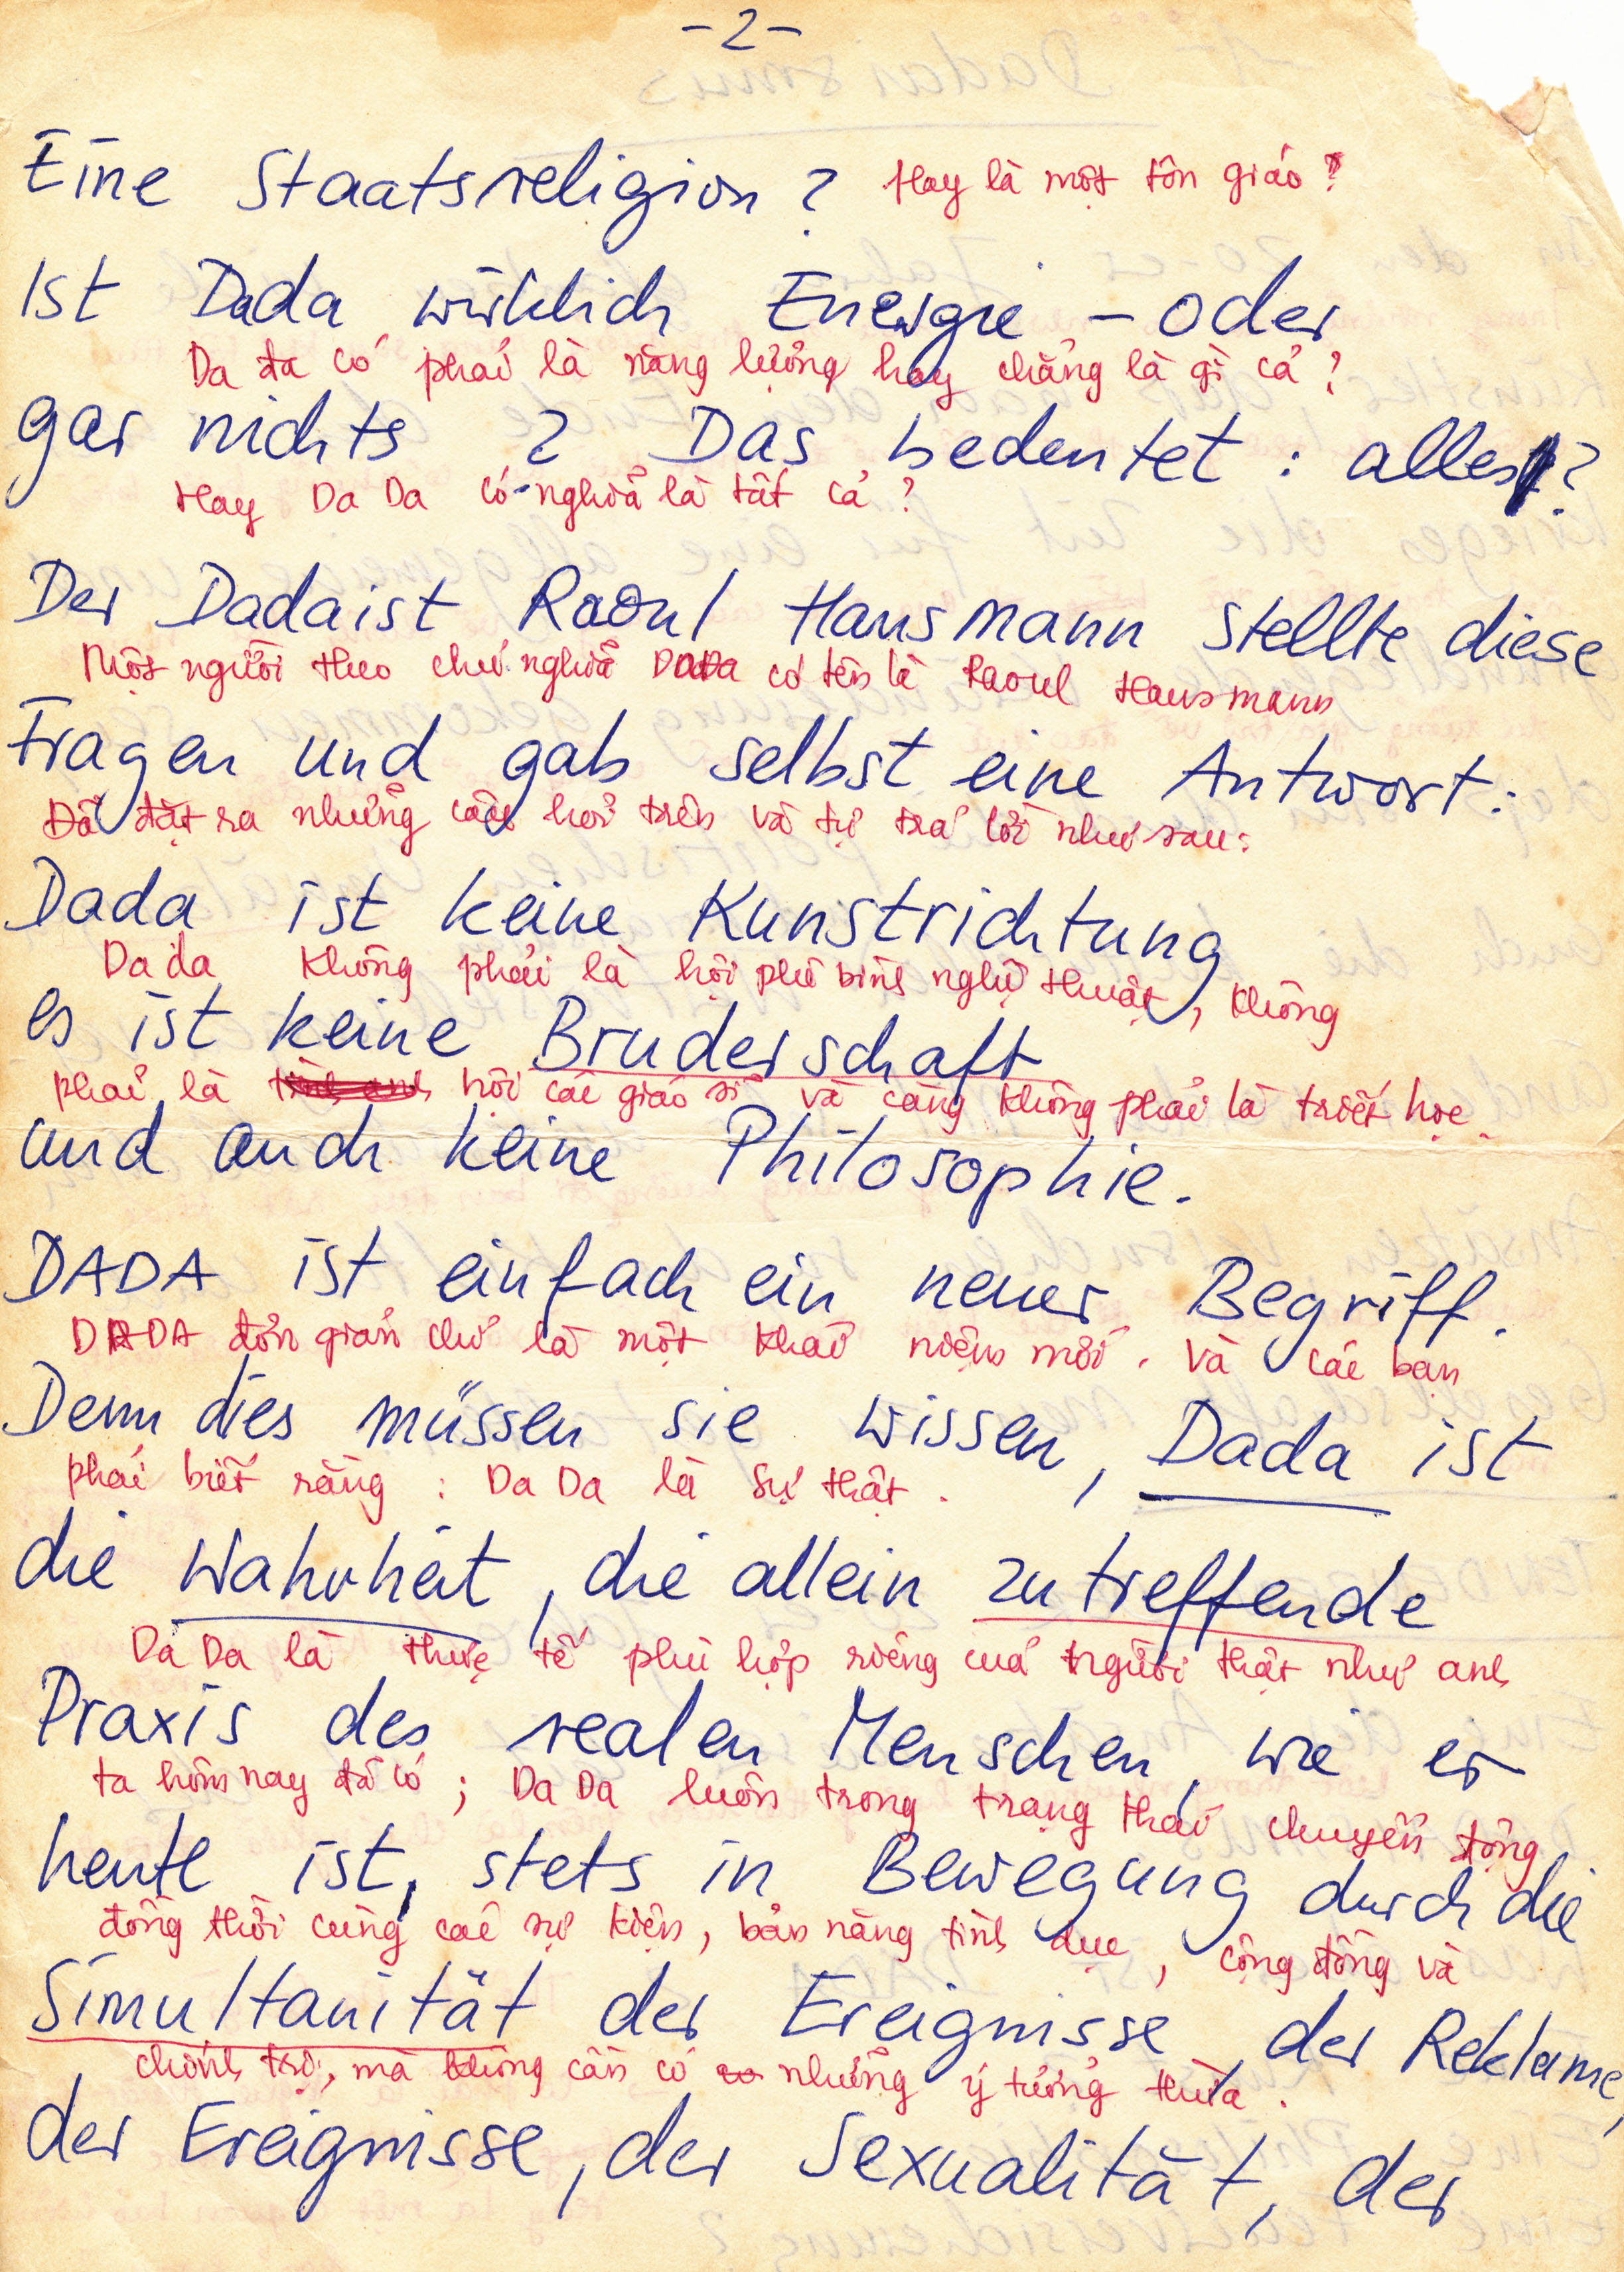 -2-
Eine Staatsreligion? Hay là một tôn giáo?
Ist Dada wirklich Energie - oder
Da đa có phải là năng lượng hay chẳng là gì cả?
gar nichts? Das bedeutet: alles?
Hay Da Da có nghĩa là tất cả?
Der Dadaist Raoul Hausmann stellte diese
Một người theo chủ nghĩa DADA có tên là Raoul Hausmann
Fragen und gab selbst eine Antwort:
Đã đặt ra những câu hỏi trên và tự trả lời như sau:
Dada ist keine Kunstrichtung
Dada không phải là hội phê bình nghệ thuật, không
es ist keine Bruderschaft
phải là hội các giáo sĩ và cũng không phải là triết học.
und auch keine Philosophie.
DADA ist einfach ein neuer Begriff.
DADA đơn giản chỉ là một khái niệm mới. Và các bạn
Denn dies müssen sie wissen, Dada ist
phải biết rằng: Da Da là sự thật.
die Wahrheit, die allein zutreffende
Da Da là thực tế phù hợp riêng của người thật như anh
Praxis des realen Menschen, wie er
ta hôm nay đã có; Da Da luôn trong trạng thái chuyển động
heute ist, stets in Bewegung durch die
đồng thời cùng các sự kiện, bản năng tình dục, cộng đồng và
Simultanität der Ereignisse, der Reklame,
chính trị, mà không cần có những ý tưởng thừa.
der Ereignisse, der Sexualität, der